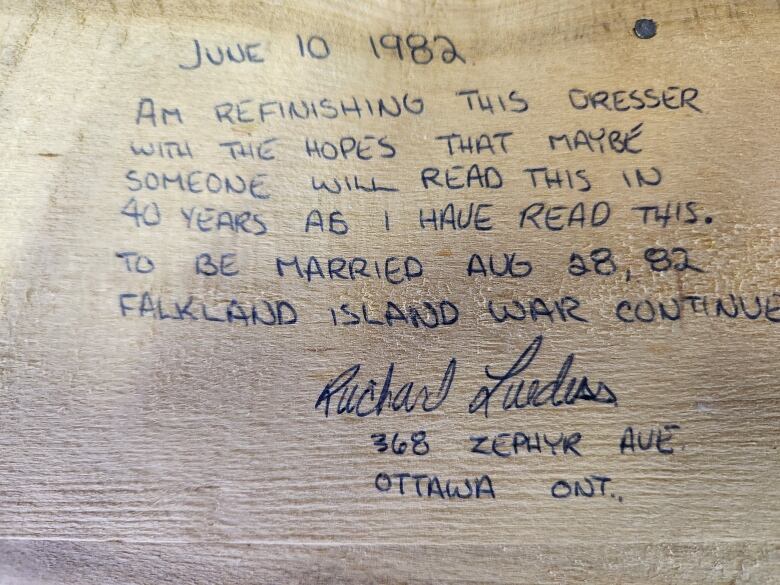 JUNE 10 1982
AM REFINISHING THIS DRESSER
WITH THE HOPES THAT MAYBE
SOMEONE WILL READ THIS IN
40 YEARS AS I HAVE READ THIS.
TO BE MARRIED AUG 28, 82
FALKLAND ISLAND WAR CONTINUE
Richard
368 ZEPHYR AVE.
OTTAWA ONT.